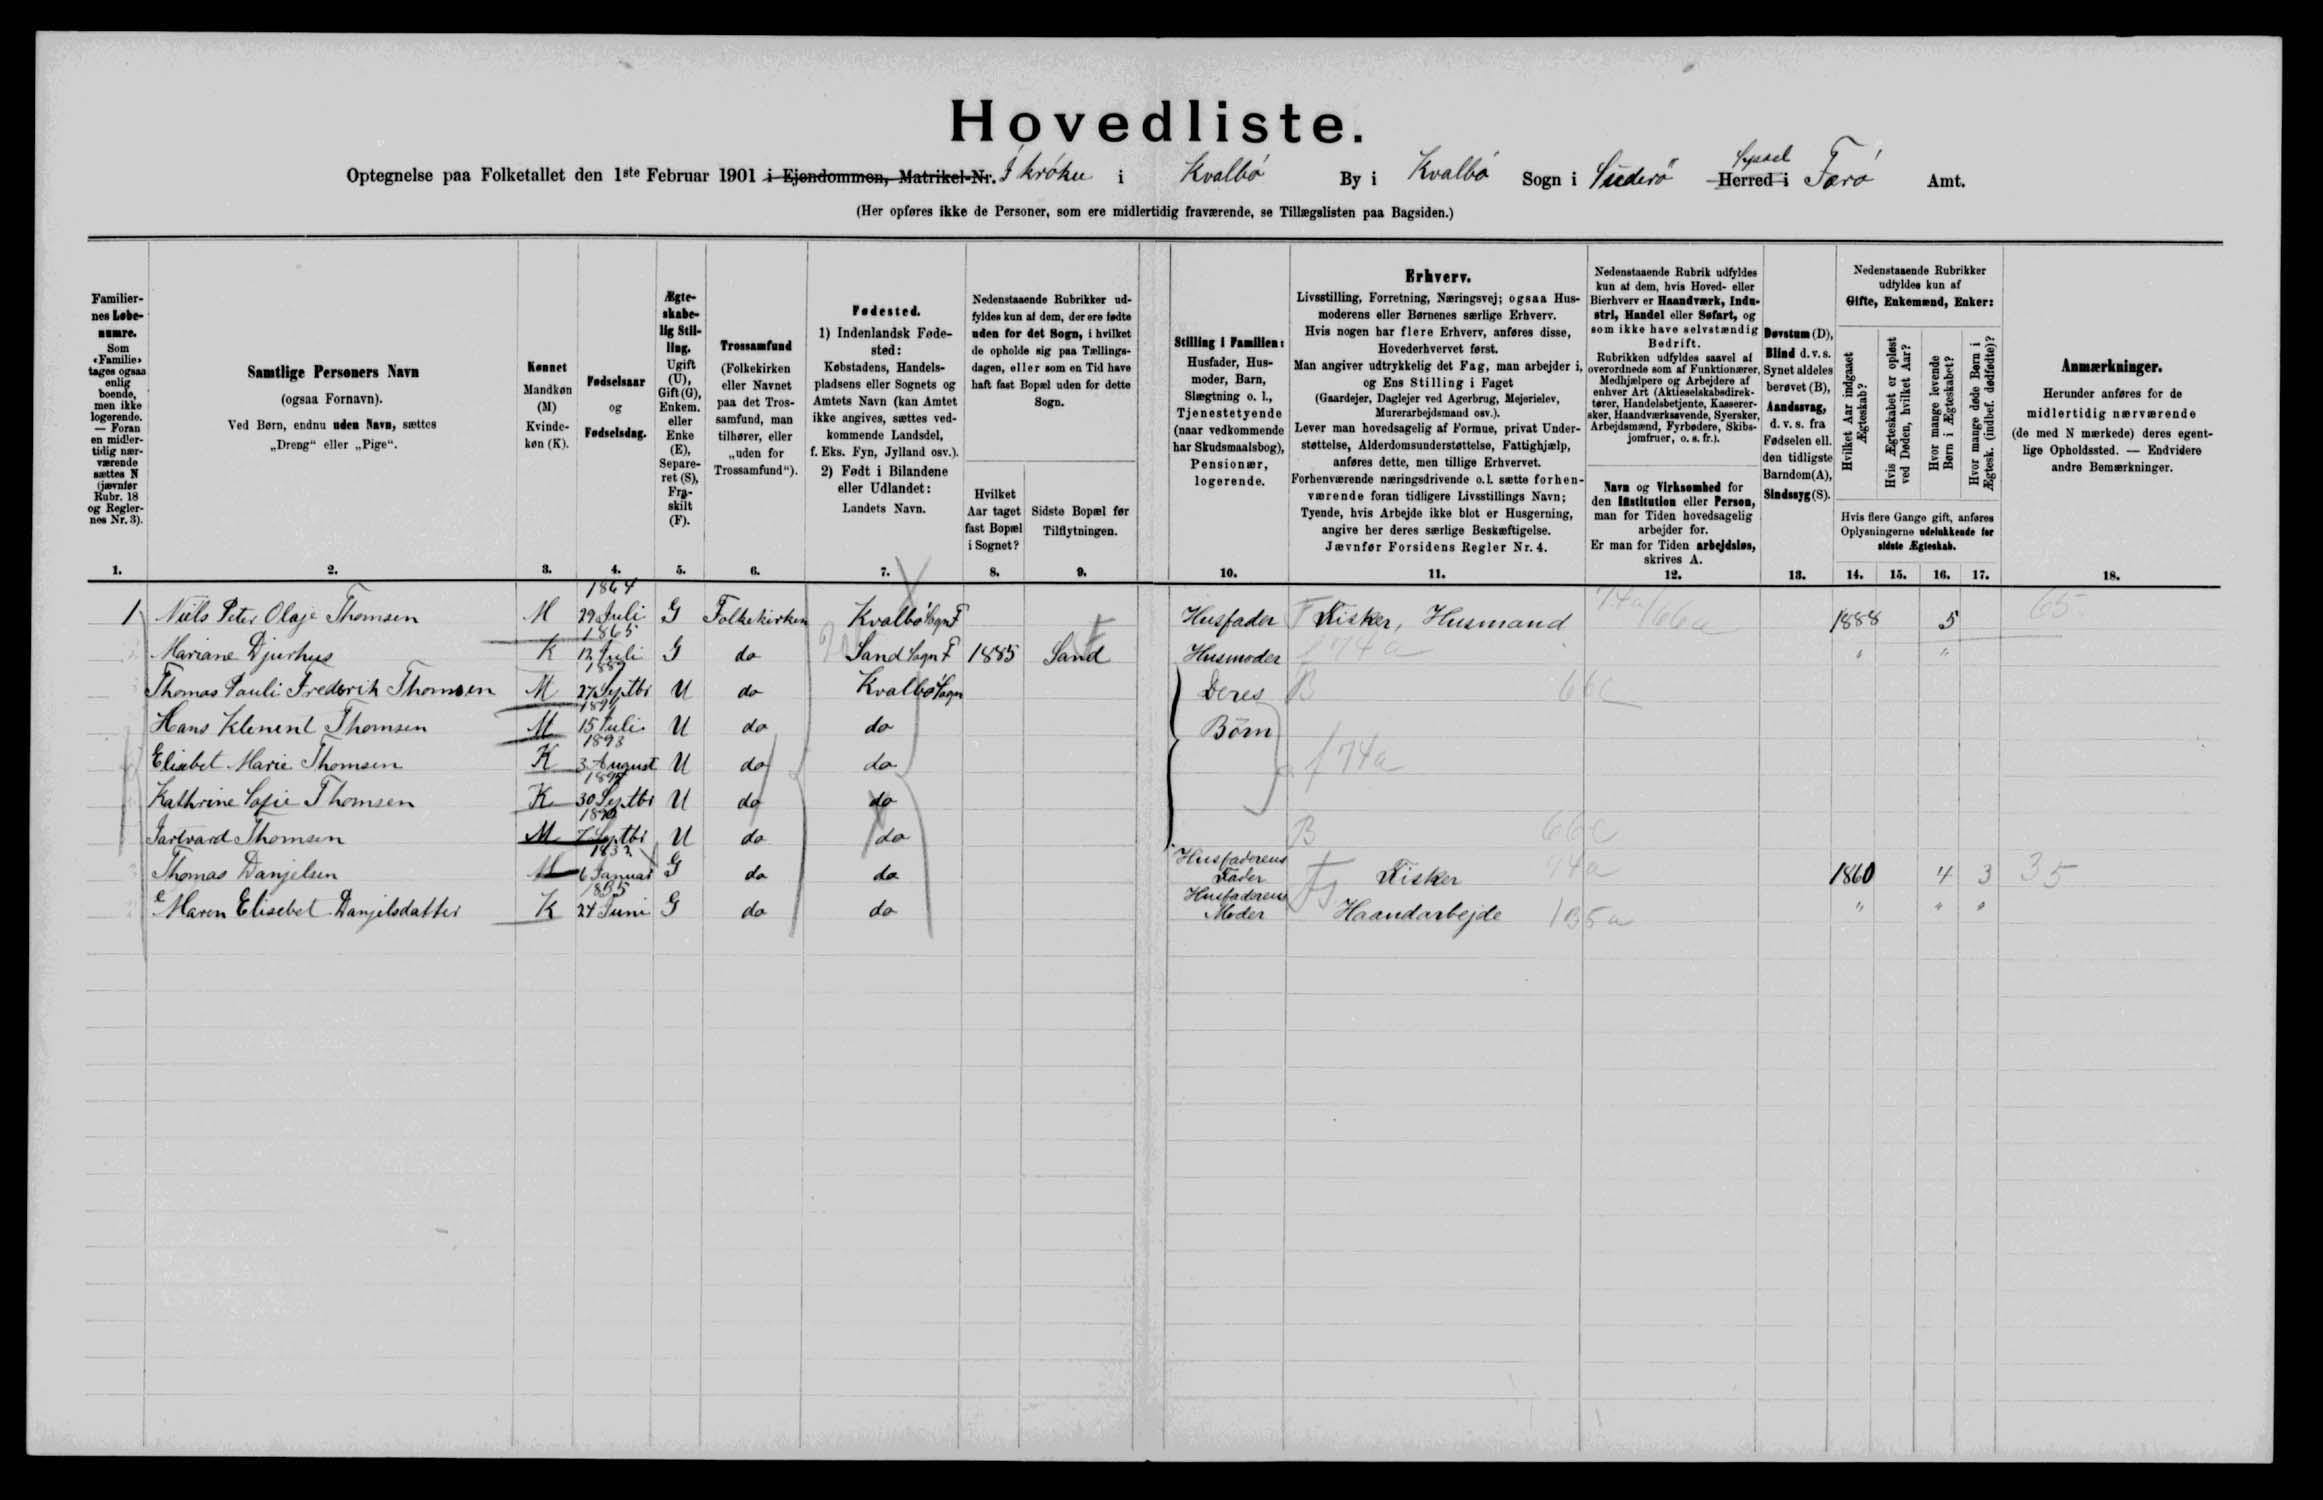 Hovedliste.
Optegnelse paa Folketallet den 1ste Februar 1901 i Ejendommen, Matrikel-Nr. Í króku i Kvalbö By i Kvalbö Sogn i Suderö Syssel Herred i Færö Amt.
(Her opføres ikke de Personer, som ere midlertidig fraværende, se Tillægslisten paa Bagsiden.)
Familiernes Løbenumre. Som «Familie» tages ogsaa enlig boende, men ikke logerende. — Foran en midlertidig nærværende sættes N (jævnfør Rubr. 18 og Reglernes Nr. 3).
Samtlige Personers Navn (ogsaa Fornavn). Ved Børn, endnu uden Navn, sættes „Dreng“ eller „Pige“.
Kønnet Mandkøn (M) Kvindekøn (K).
Fødselsaar og Fødselsdag.
Ægteskabelig Stilling. Ugift (U), Gift (G), Enkem. eller Enke (E), Separeret (S), Fraskilt (F).
Trossamfund (Folkekirken eller Navnet paa det Trossamfund, man tilhører, eller „uden for Trossamfund“).
Fødested. 1) Indenlandsk Fødested: Købstadens, Handelspladsens eller Sognets og Amtets Navn (kan Amtet ikke angives, sættes vedkommende Landsdel, f. Eks. Fyn, Jylland osv.). 2) Født i Bilandene eller Udlandet: Landets Navn.
Nedenstaaende Rubrikker udfyldes kun af dem, der ere fødte uden for det Sogn, i hvilket de opholde sig paa Tællingsdagen, eller som en Tid have haft fast Bopæl uden for dette Sogn.
Hvilket Aar taget fast Bopæl i Sognet?
Sidste Bopæl før Tilflytningen.
Stilling i Familien: Husfader, Husmoder, Barn, Slægtning o. l., Tjenestetyende (naar vedkommende har Skudsmaalsbog), Pensionær, logerende.
Erhverv.
Livsstilling, Forretning, Næringsvej; ogsaa Husmoderens eller Børnenes særlige Erhverv.
Hvis nogen har flere Erhverv, anføres disse, Hovederhvervet først.
Man angiver udtrykkelig det Fag, man arbejder i, og Ens Stilling i Faget
(Gaardejer, Daglejer ved Agerbrug, Mejerielev, Murerarbejdsmand osv.).
Lever man hovedsagelig af Formue, privat Understøttelse, Alderdomsunderstøttelse, Fattighjælp, anføres dette, men tillige Erhvervet.
Forhenværende næringsdrivende o.l. sætte forhenværende foran tidligere Livsstillings Navn;
Tyende, hvis Arbejde ikke blot er Husgerning, angive her deres særlige Beskæftigelse.
Jævnfør Forsidens Regler Nr. 4.
Nedenstaaende Rubrik udfyldes kun af dem, hvis Hoved- eller Bierhverv er Haandværk, Industri, Handel eller Søfart, og som ikke have selvstændig Bedrift.
Rubrikken udfyldes saavel af overordnede som af Funktionærer, Medhjælpere og Arbejdere af enhver Art (Aktieselskabsdirektører, Handelsbetjente, Kasserersker, Haandværkssvende, Syersker, Arbejdsmænd, Fyrbødere, Skibsjomfruer, o. s. fr.).
Navn og Virksomhed for den Institution eller Person, man for Tiden hovedsagelig arbejder for.
Er man for Tiden arbejdsløs, skrives A.
Døvstum (D), Blind d. v. s. Synet aldeles berøvet (B), Aandssvag, d. v. s. fra Fødselen ell. den tidligste Barndom (A), Sindssyg (S).
Nedenstaaende Rubrikker udfyldes kun af Gifte, Enkemænd, Enker:
Hvilket Aar indgaaet Ægteskab?
Hvis Ægteskabet er opløst ved Døden, hvilket Aar?
Hvor mange levende Børn i Ægteskabet?
Hvor mange døde Børn i Ægtesk. (indbef. dødfødte)?
Hvis flere Gange gift, anføres Oplysningerne udelukkende for sidste Ægteskab.
Anmærkninger. Herunder anføres for de midlertidig nærværende (de med N mærkede) deres egentlige Opholdssted. — Endvidere andre Bemærkninger.
1. 2. 3. 4. 5. 6. 7. 8. 9. 10. 11. 12. 13. 14. 15. 16. 17. 18.
1 Niels Peter Olaje Thomsen M 1864 29 Juli G Folkekirken Kvalbö Sogn F Husfader F Fisker, Husmand 74a/66a 1888 5 65
Mariane Djurhus K 1865 12 Juli G do Sand Sogn F 1885 Sand Husmoder f 74a " "
Thomas Pauli Frederik Thomsen M 1887 27 Septbr U do Kvalbö Sogn Deres B 66c
Hans Klement Thomsen M 15 Juli U do do Börn
Elisebet Marie Thomsen K 1893 3 August U do do f 74a
Kathrine Sofie Thomsen K 30 Septbr U do do
Jartvard Thomsen M 7 Septbr U do do B 66c
Thomas Danjelsen M 6 Januar G do do Husfaderens Fader Fisker 74a 1860 4 3 35
Maren Elisebet Danjelsdatter K 1835 24 Juni G do do Husfaderens Moder Haandarbejde 135a " " "